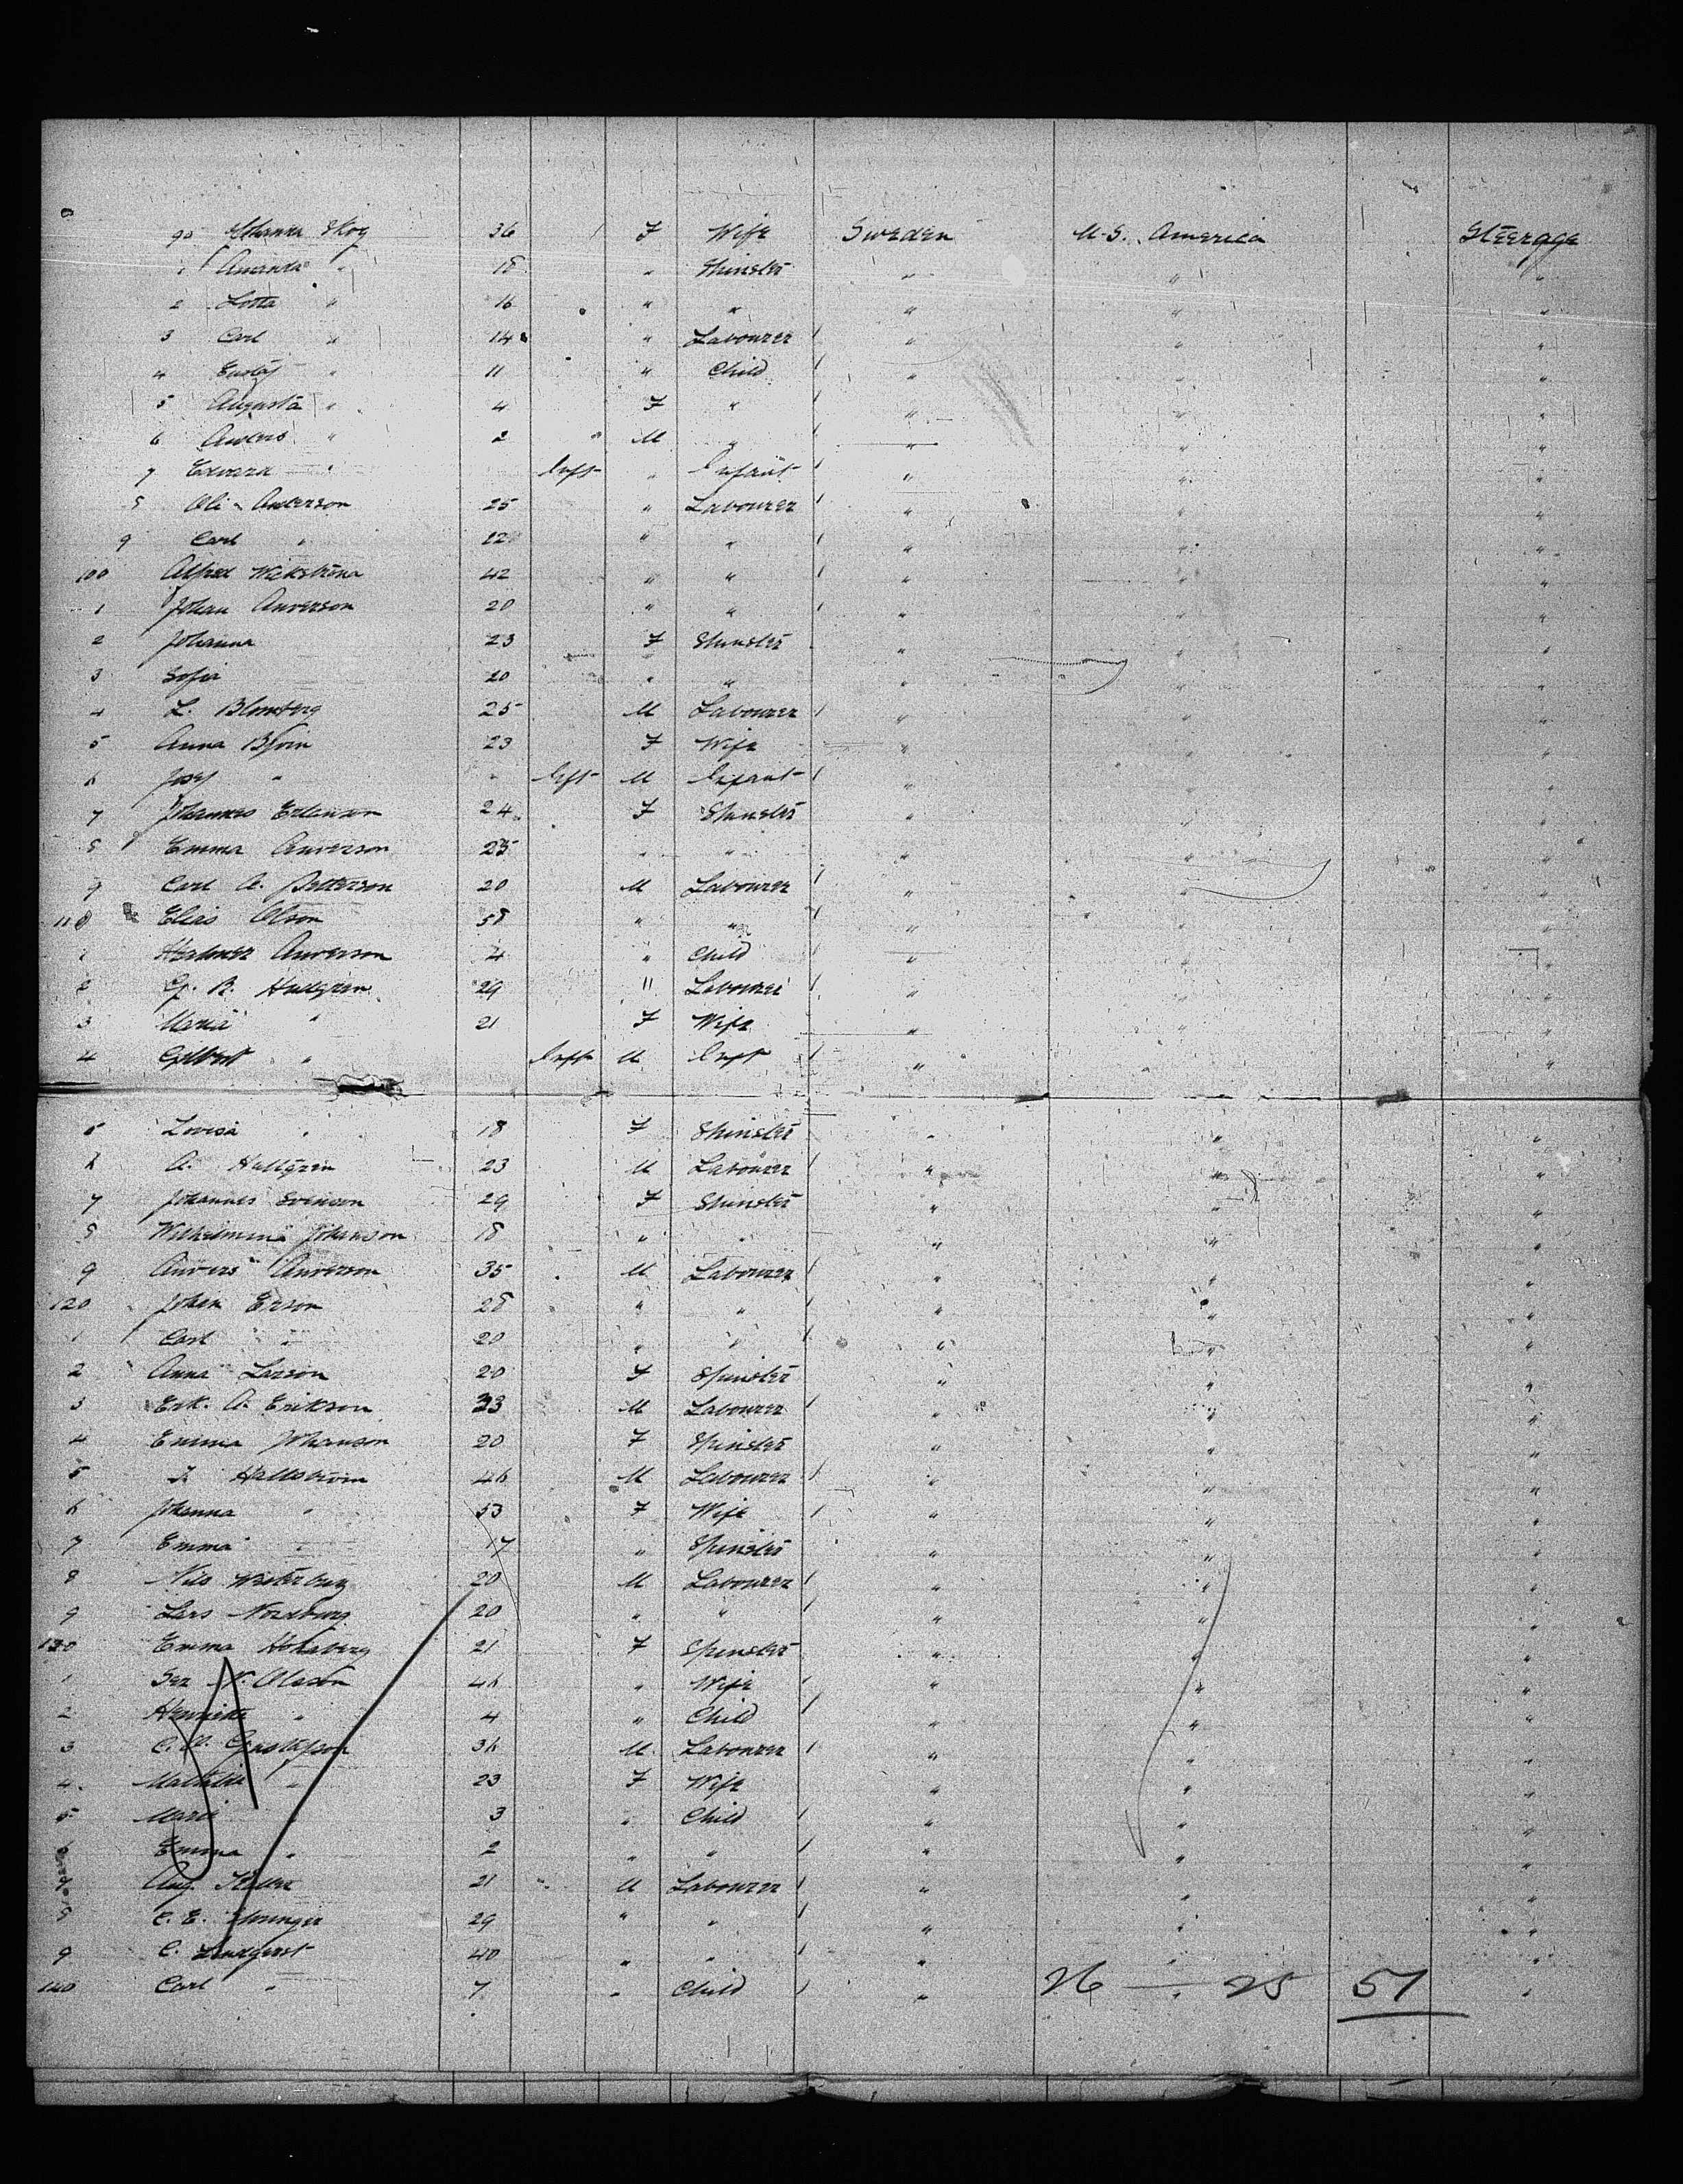 90 Johanna Skog 36 F Wife Sweden U.S. America Steerage
1 Amanda " 18 " Spinster " " "
2 Lotta " 16 " " " " "
3 Carl " 14 " Labourer " " "
4 Gustaf " 11 " Child " " "
5 Augusta " 4 F " " " "
6 Anders " 2 M " " " "
7 Edward " Inft " Infant " " "
8 Ole Anderson 25 " Labourer " " "
9 Carl " 12 " " " " "
100 Alfred 42 " " " " "
1 Johan Anderson 20 " " " " "
2 Johanna 23 F Spinster " " "
3 Sofia 20 " " " " "
4 L. Blomberg 25 M Labourer " " "
5 Anna Bjorn 23 F Wife " " "
6 Josef " " Inft M Infant " "
7 Johannes Erlanson 24 F Spinster " "
8 Emma Anderson 25 " " " " "
9 Carl A. Petterson 20 M Labourer " " "
110 Elias Olson 58 " " " "
1 Anderson 4 " Child " "
2 G. B. Hullgren 29 " Labourer " "
3 Maria " 21 F Wife " " "
4 " Inft M Inft " "
5 Lovisa " 18 F Spinster " " "
6 A. Hallgren 23 M Labourer " " "
7 Johannes Svenson 29 F Spinster " " "
8 Wilhelmina Johanson 18 " " " " "
9 Anders Anderson 35 M Labourer " " "
120 Johan Erson 28 " " " " "
1 Carl " 20 " " " " "
2 Anna Larson 20 F Spinster " " "
3 Erk. A. Erikson 33 M Labourer " " "
4 Emma Johanson 20 F Spinster " " "
5 J. Hallstrom 46 M Labourer " " "
6 Johanna " 53 F Wife " "
7 Emma " 17 " Spinster " " "
8 Nils Westerburg 20 M Labourer " " "
9 Lars Nordburg 20 " " " " "
130 Emma 21 F Spinster " " "
1 N. Olason 46 " Wife " " "
2 " 4 " Child " " "
3 C. Gustafson 36 M Labourer " " "
4 Mathilda " 23 F Wife " " "
5 Maria " 3 " Child " " "
6 Emma " 2 " " " " "
7 Aug. 21 M Labourer " " "
8 C. E. 29 " " " " "
9 C. Lindqvist 40 " " " " "
140 Carl " 7 " Child " " "
26 — 25 51